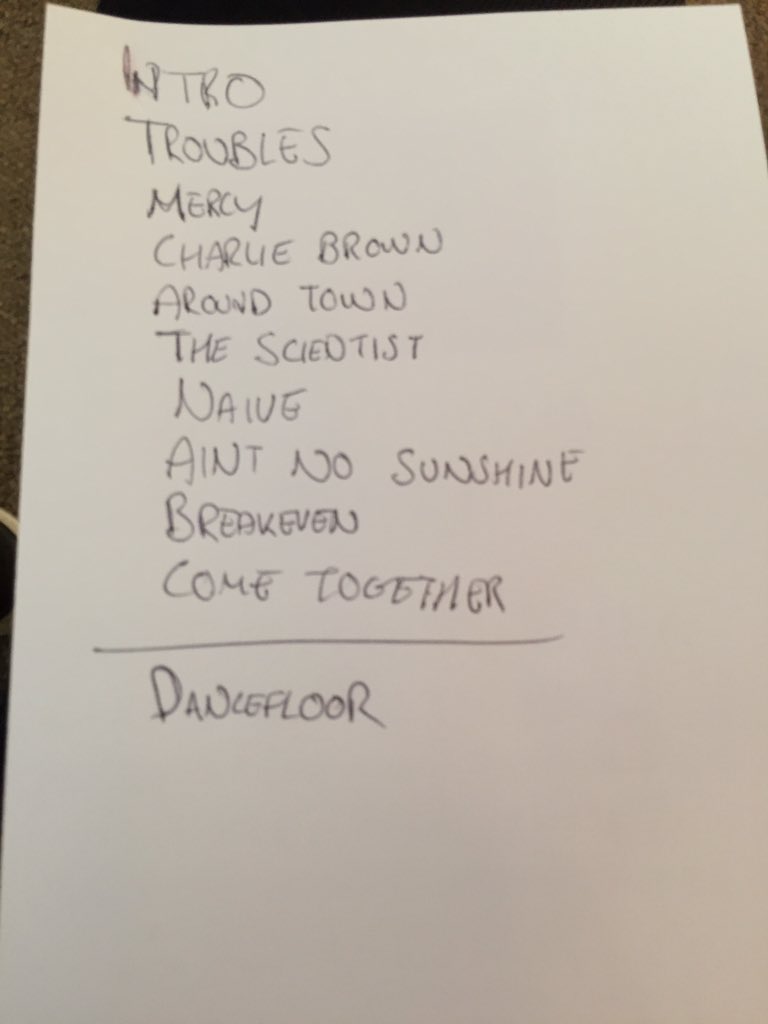 INTRO
TROUBLES
MERCY
CHARLIE BROWN
AROUND TOWN
THE SCIENTIST
NAIVE
AINT NO SUNSHINE
BREAKEVEN
COME TOGETHER
DANCEFLOOR